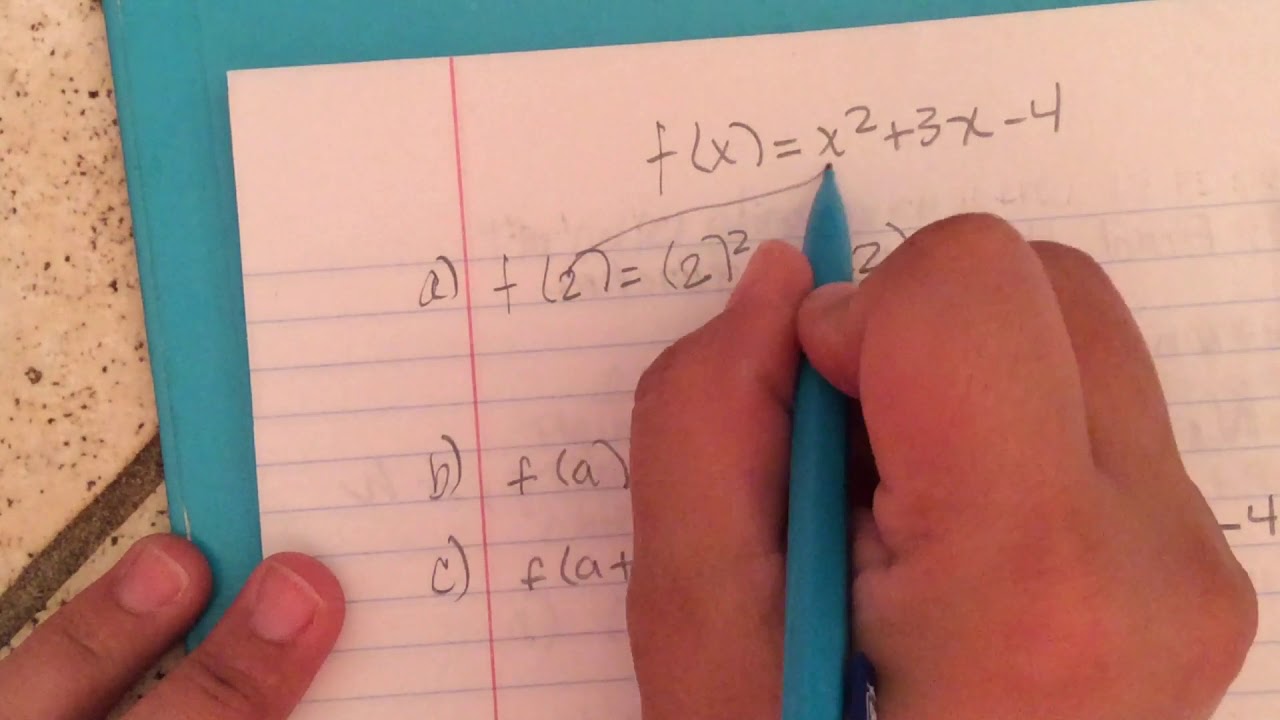 f(x)=x²+3x-4
a) f(2)=(2)² 2)
b) f(a)
c) f(a+ -4